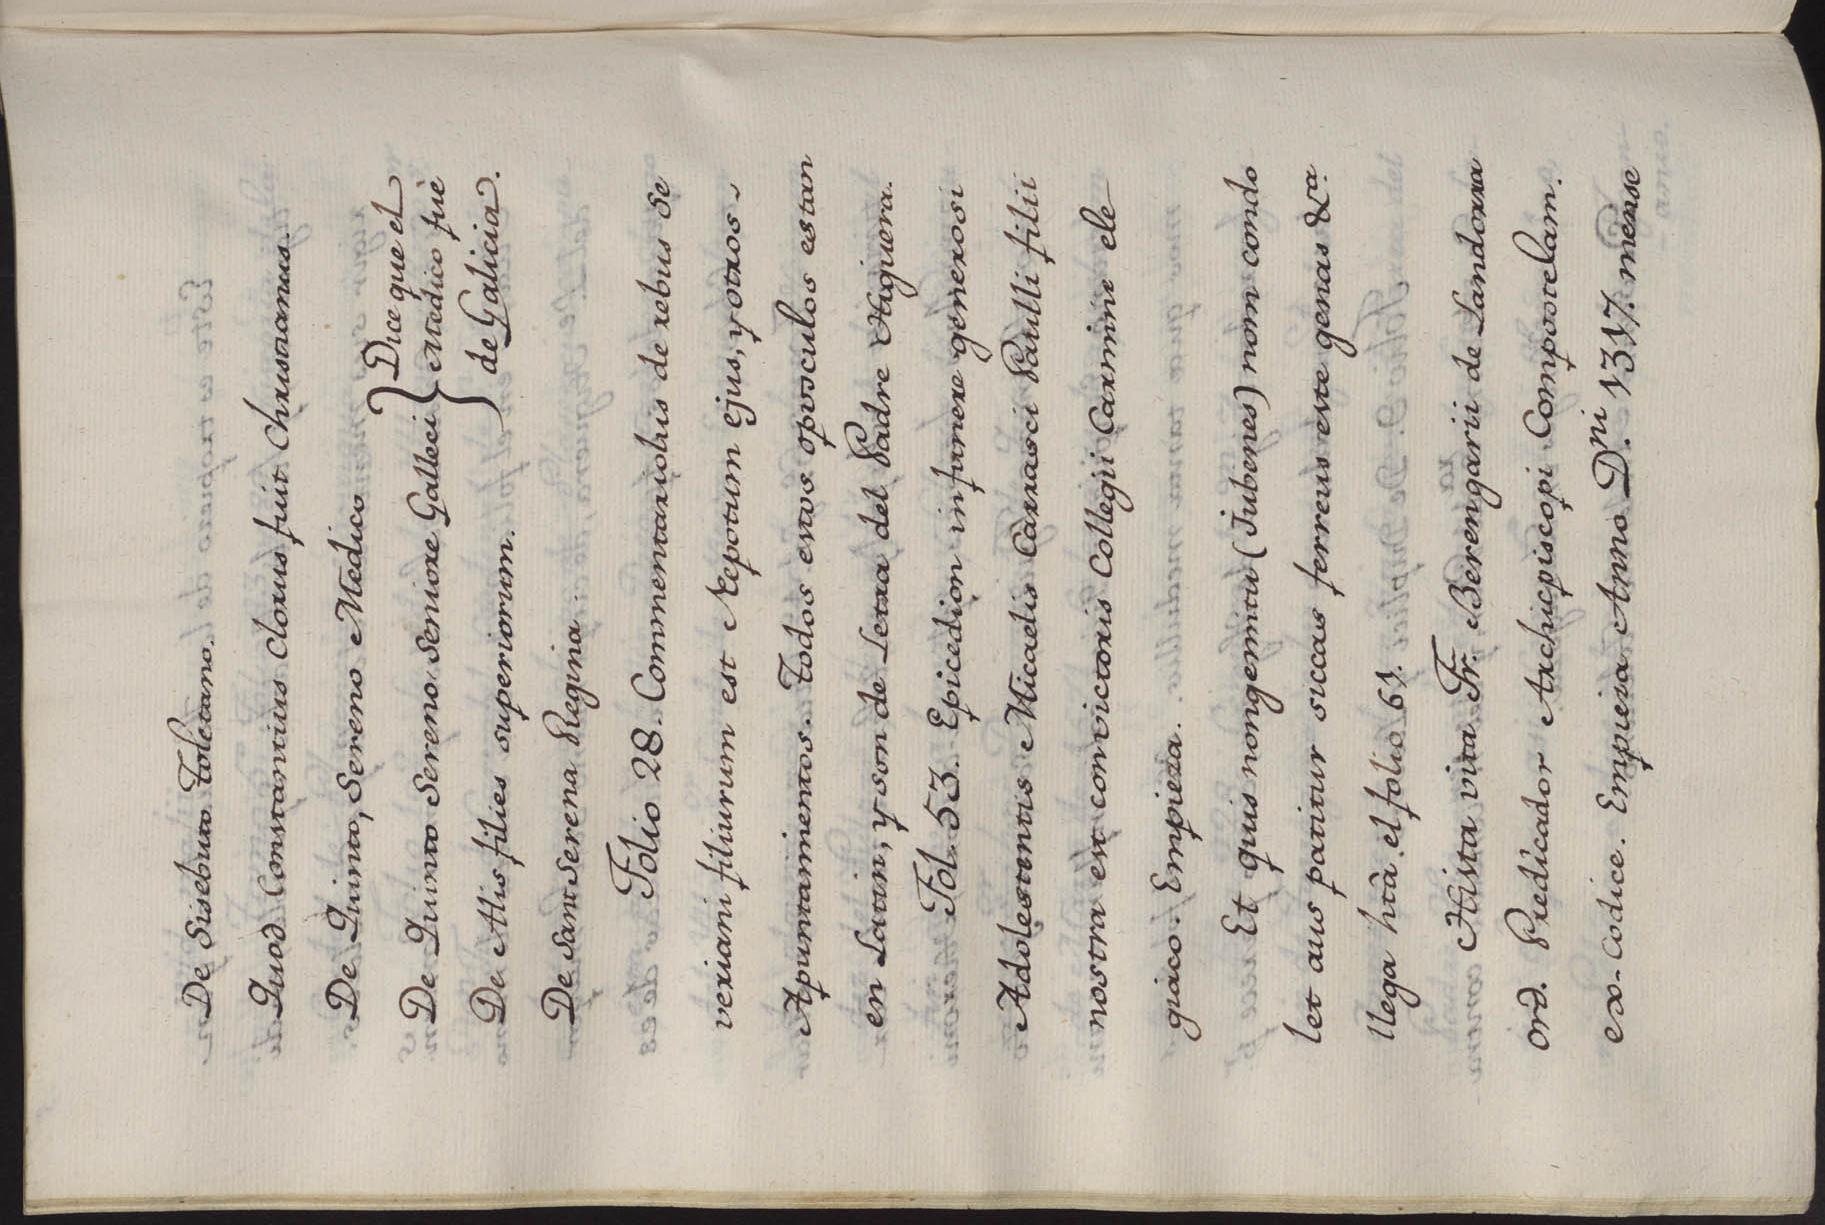 De Sisebuto Toletano.
Quod Constantius Clorus fuit Christianus.
De Quinto, Sereno Medico
De Quinto Sereno Seniore Galleci } Dice que el Medico fuè de Galicia.
De Alis filies superiorum.
De Sant Serena Regina.
Folio 28. Commentariolus de rebus Se
veriani filiurum est Nepotum ejus, y otros
Apuntamientos. Todos estos opusculos estan
en Latin, y son de Letra del Padre Higuera.
Fol. 53. Epicedion in funere generosi
Adolestentis Micaelis Carrasci Paulli filii
nostra est convictoris Collegii Carmine ele
giaco. Empieza.
Et quis nongemitu (Jubenes) nom condo
let aus patitur siccas ferreus este genas &a.
llega htâ el folio 61.
Hista vita Fr. Berengarii de Landorra
ord. Predicador Archiepiscopi Compostelam.
ex-Codice. Empieza Anno Dni. 1317. mense